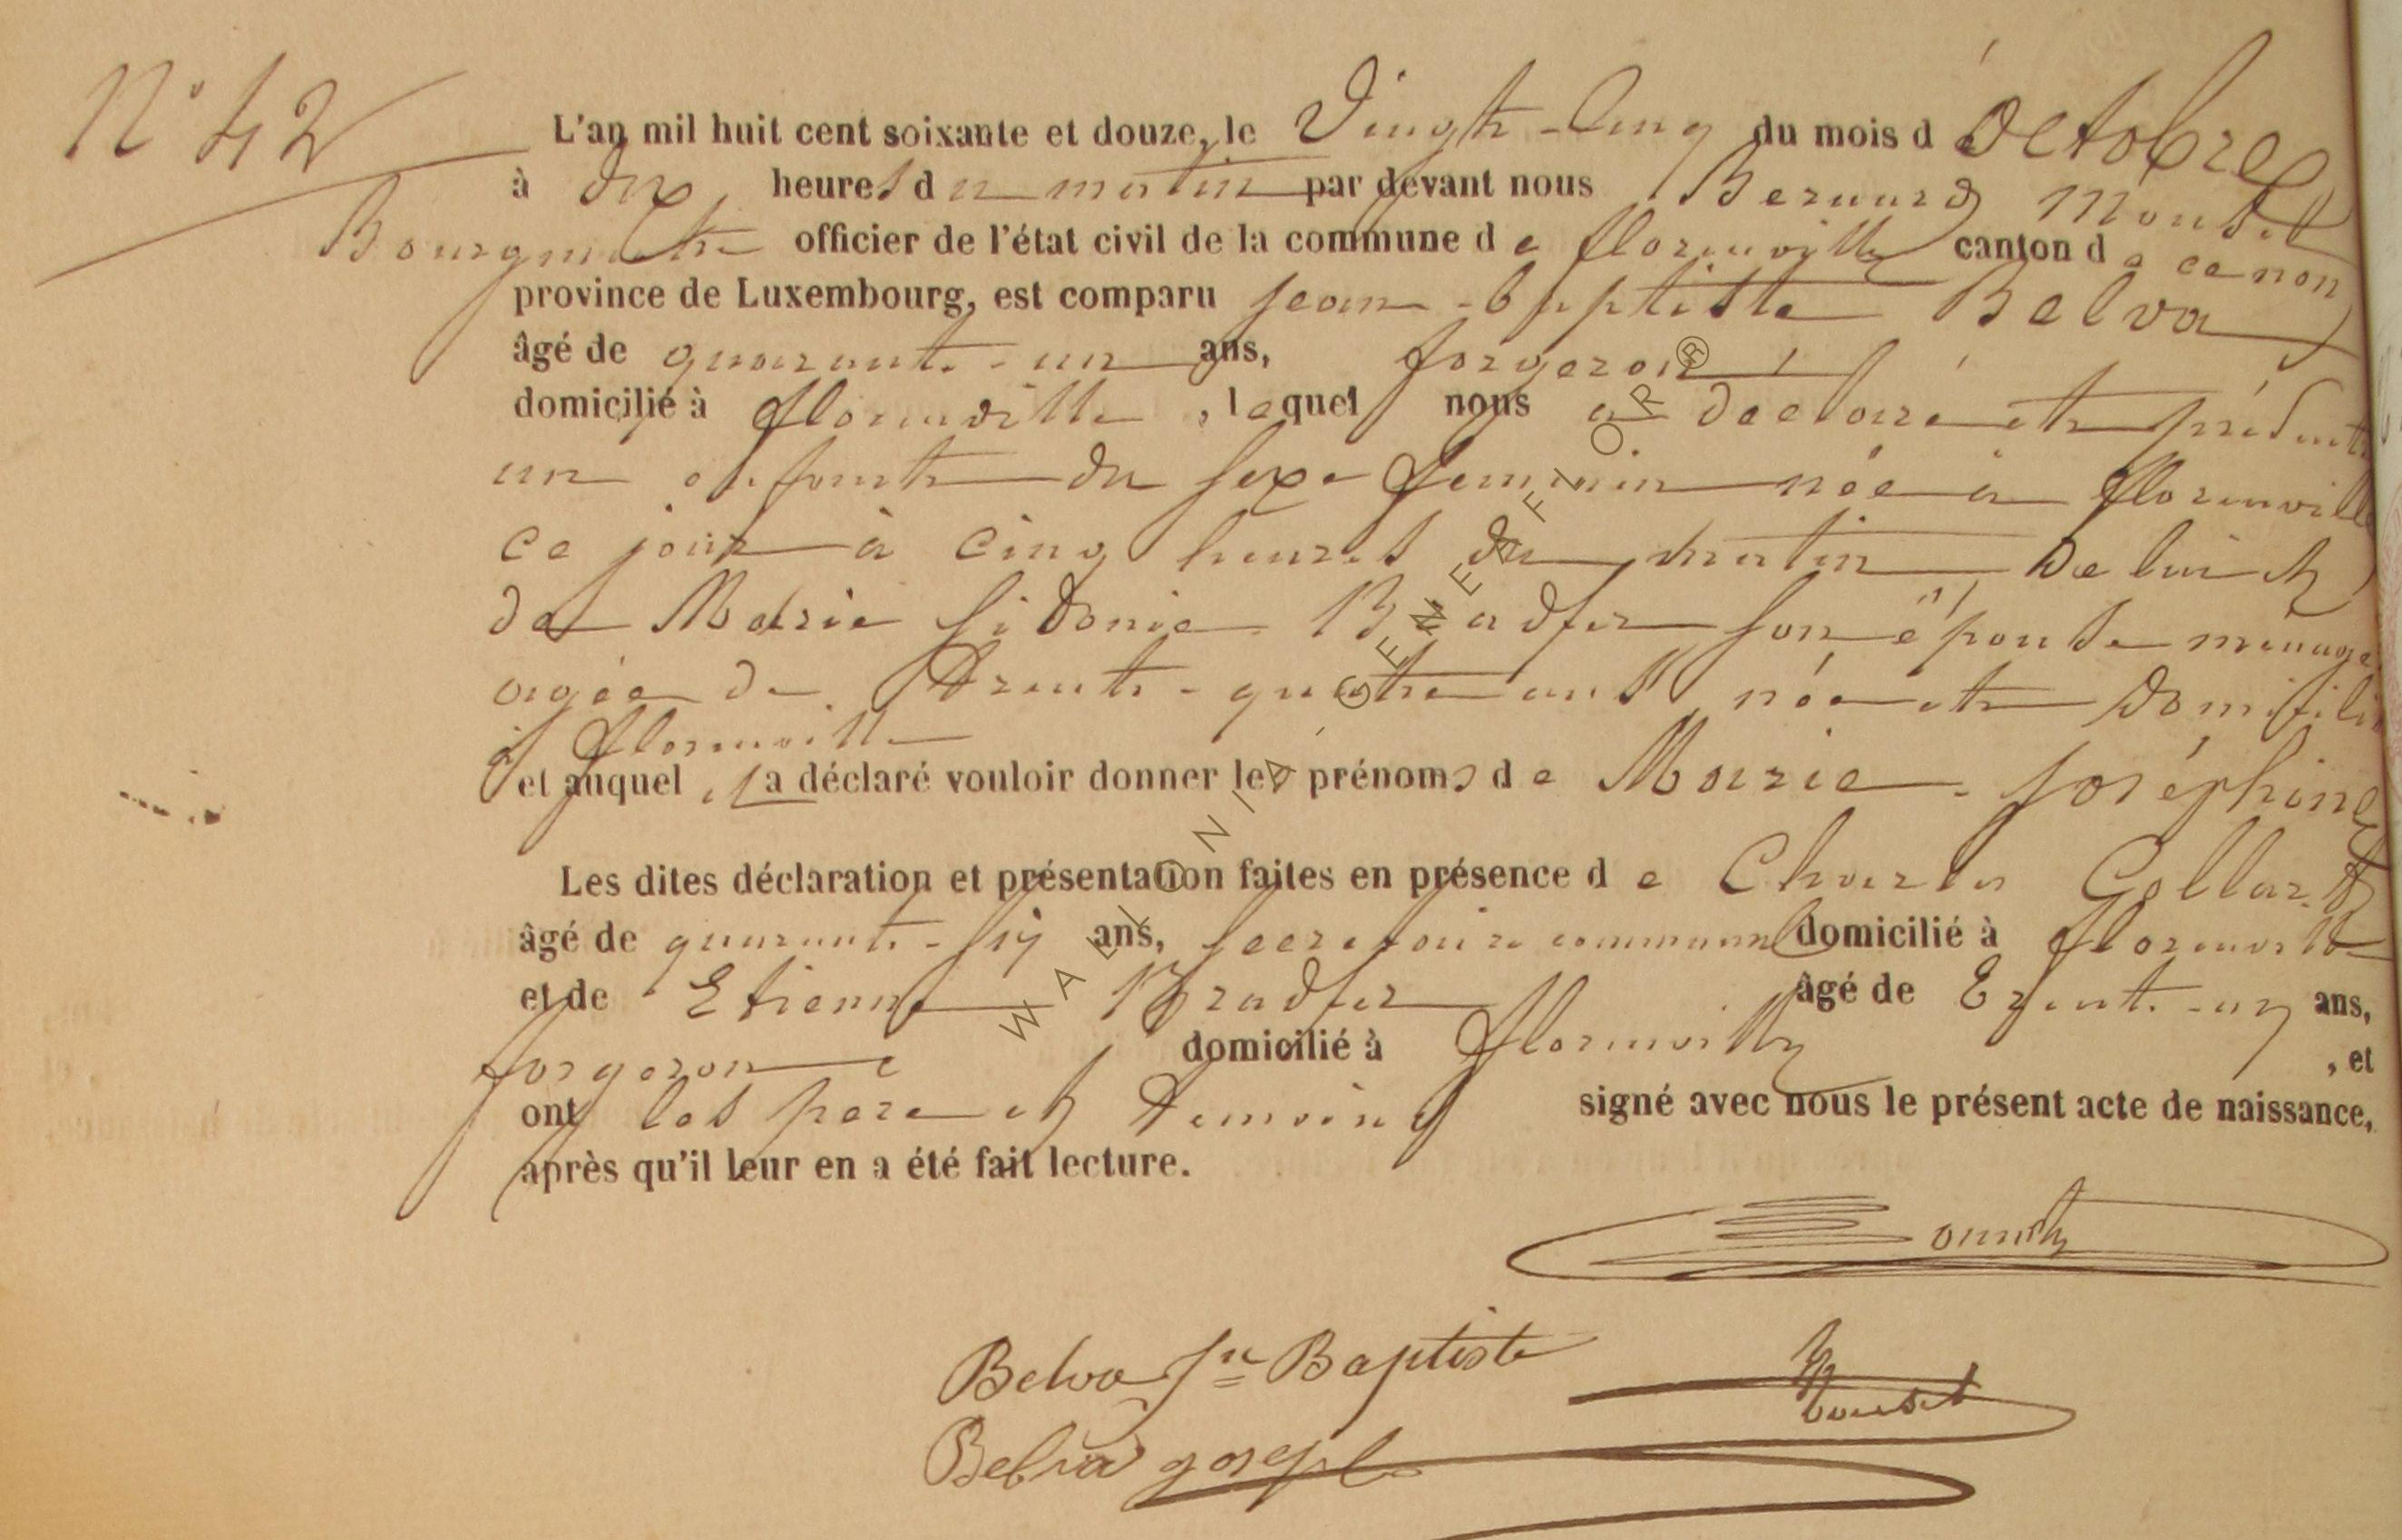 N° 42
L'an mil huit cent soixante et douze, le Vingt-Cinq du mois d'Octobre
à dix heures du matin par devant nous Bernard Mousel
Bourgmestre officier de l'état civil de la commune de florenville canton de ce nom
province de Luxembourg, est comparu jean-baptiste Belva
âgé de quarante-un ans, forgeron
domicilié à florenville, lequel nous a déclaré et présenté
un enfant du sexe feminin née à florenville
ce jour à cinq heures du matin de lui et
de Marie sidonie Bradfer son épouse ménagè
agée de trente-quatre ans née et domicilié
à florenville
et auquel il a déclaré vouloir donner les prénoms de Marie-joséphine
Les dites déclaration et présentation faites en présence de Charles Gollart
âgé de quarante-six ans, secretaire communal domicilié à florenville
et de Etienne Bradfer âgé de trente-un ans,
forgeron domicilié à florenville, et
ont les père et temoins signé avec nous le présent acte de naissance,
après qu'il leur en a été fait lecture.
Belva Jn Baptiste
Mousel
Belva joseph
WALLONIA.GENEREFI.OR®